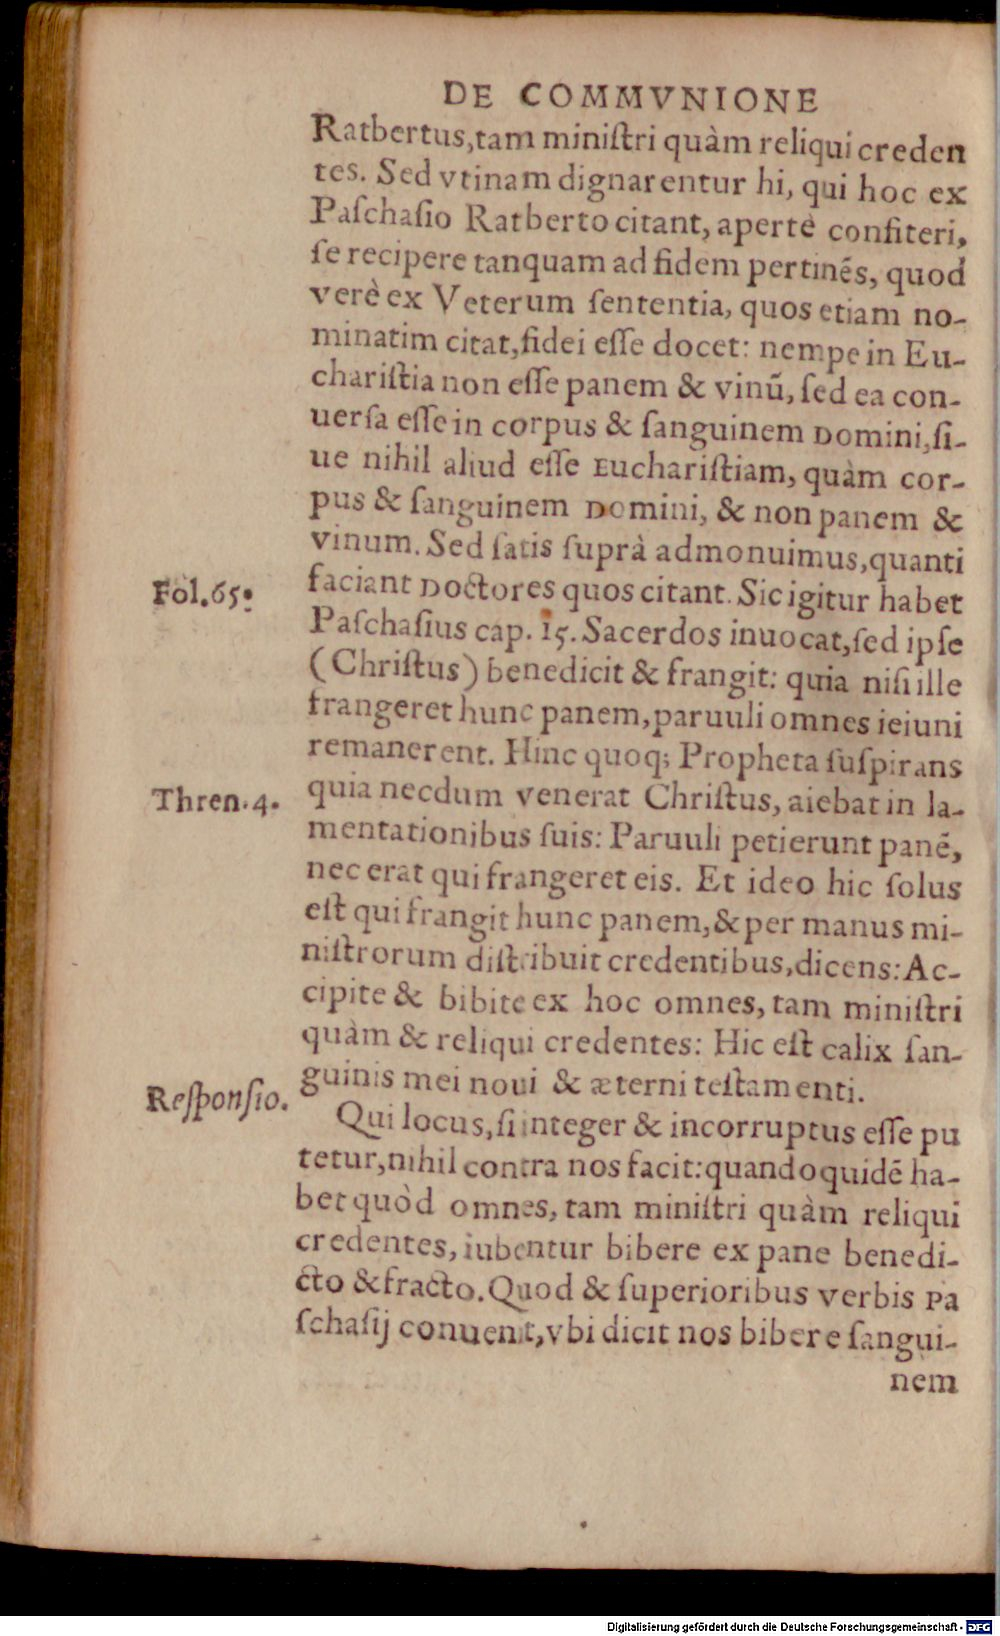 DE COMMVNIONE
Ratbertus,tam miniſtri quàm reliqui creden
tes. Sed vtinam dignarentur hi, qui hoc ex
Paſchaſio Ratberto citant, apertè confiteri,
ſe recipere tanquam ad fidem pertinẽs, quod
verè ex Veterum ſententia, quos etiam no-
minatim citat,fidei eſſe docet: nempe in Eu-
chariſtia non eſſe panem & vinũ, ſed ea con-
uerſa eſſe in corpus & ſanguinem Domini,ſi-
ue nihil aliud eſſe Euchariſtiam, quàm cor-
pus & ſanguinem Domini, & non panem &
vinum. Sed ſatis ſuprà admonuimus,quanti
Fol.65. faciant Doctores quos citant. Sic igitur habet
Paſchaſius cap. 15. Sacerdos inuocat,ſed ipſe
(Chriſtus) benedicit & frangit: quia niſi ille
frangeret hunc panem,paruuli omnes ieiuni
remanerent. Hinc quoq; Propheta ſuſpirans
Thren.4. quia necdum venerat Chriſtus, aiebat in la-
mentationibus ſuis: Paruuli petierunt panẽ,
nec erat qui frangeret eis. Et ideo hic ſolus
eſt qui frangit hunc panem,& per manus mi-
niſtrorum diſtribuit credentibus,dicens: Ac-
cipite & bibite ex hoc omnes, tam miniſtri
quàm & reliqui credentes: Hic eſt calix ſan-
guinis mei noui & æterni teſtamenti.
Reſponſio. Qui locus,ſi integer & incorruptus eſſe pu
tetur,nihil contra nos facit:quandoquidẽ ha-
bet quòd omnes, tam miniſtri quàm reliqui
credentes, iubentur bibere ex pane benedi-
cto & fracto. Quod & ſuperioribus verbis Pa
ſchaſij conuenit,vbi dicit nos bibere ſangui-
nem
Digitalisierung gefördert durch die Deutsche Forschungsgemeinschaft - DFG